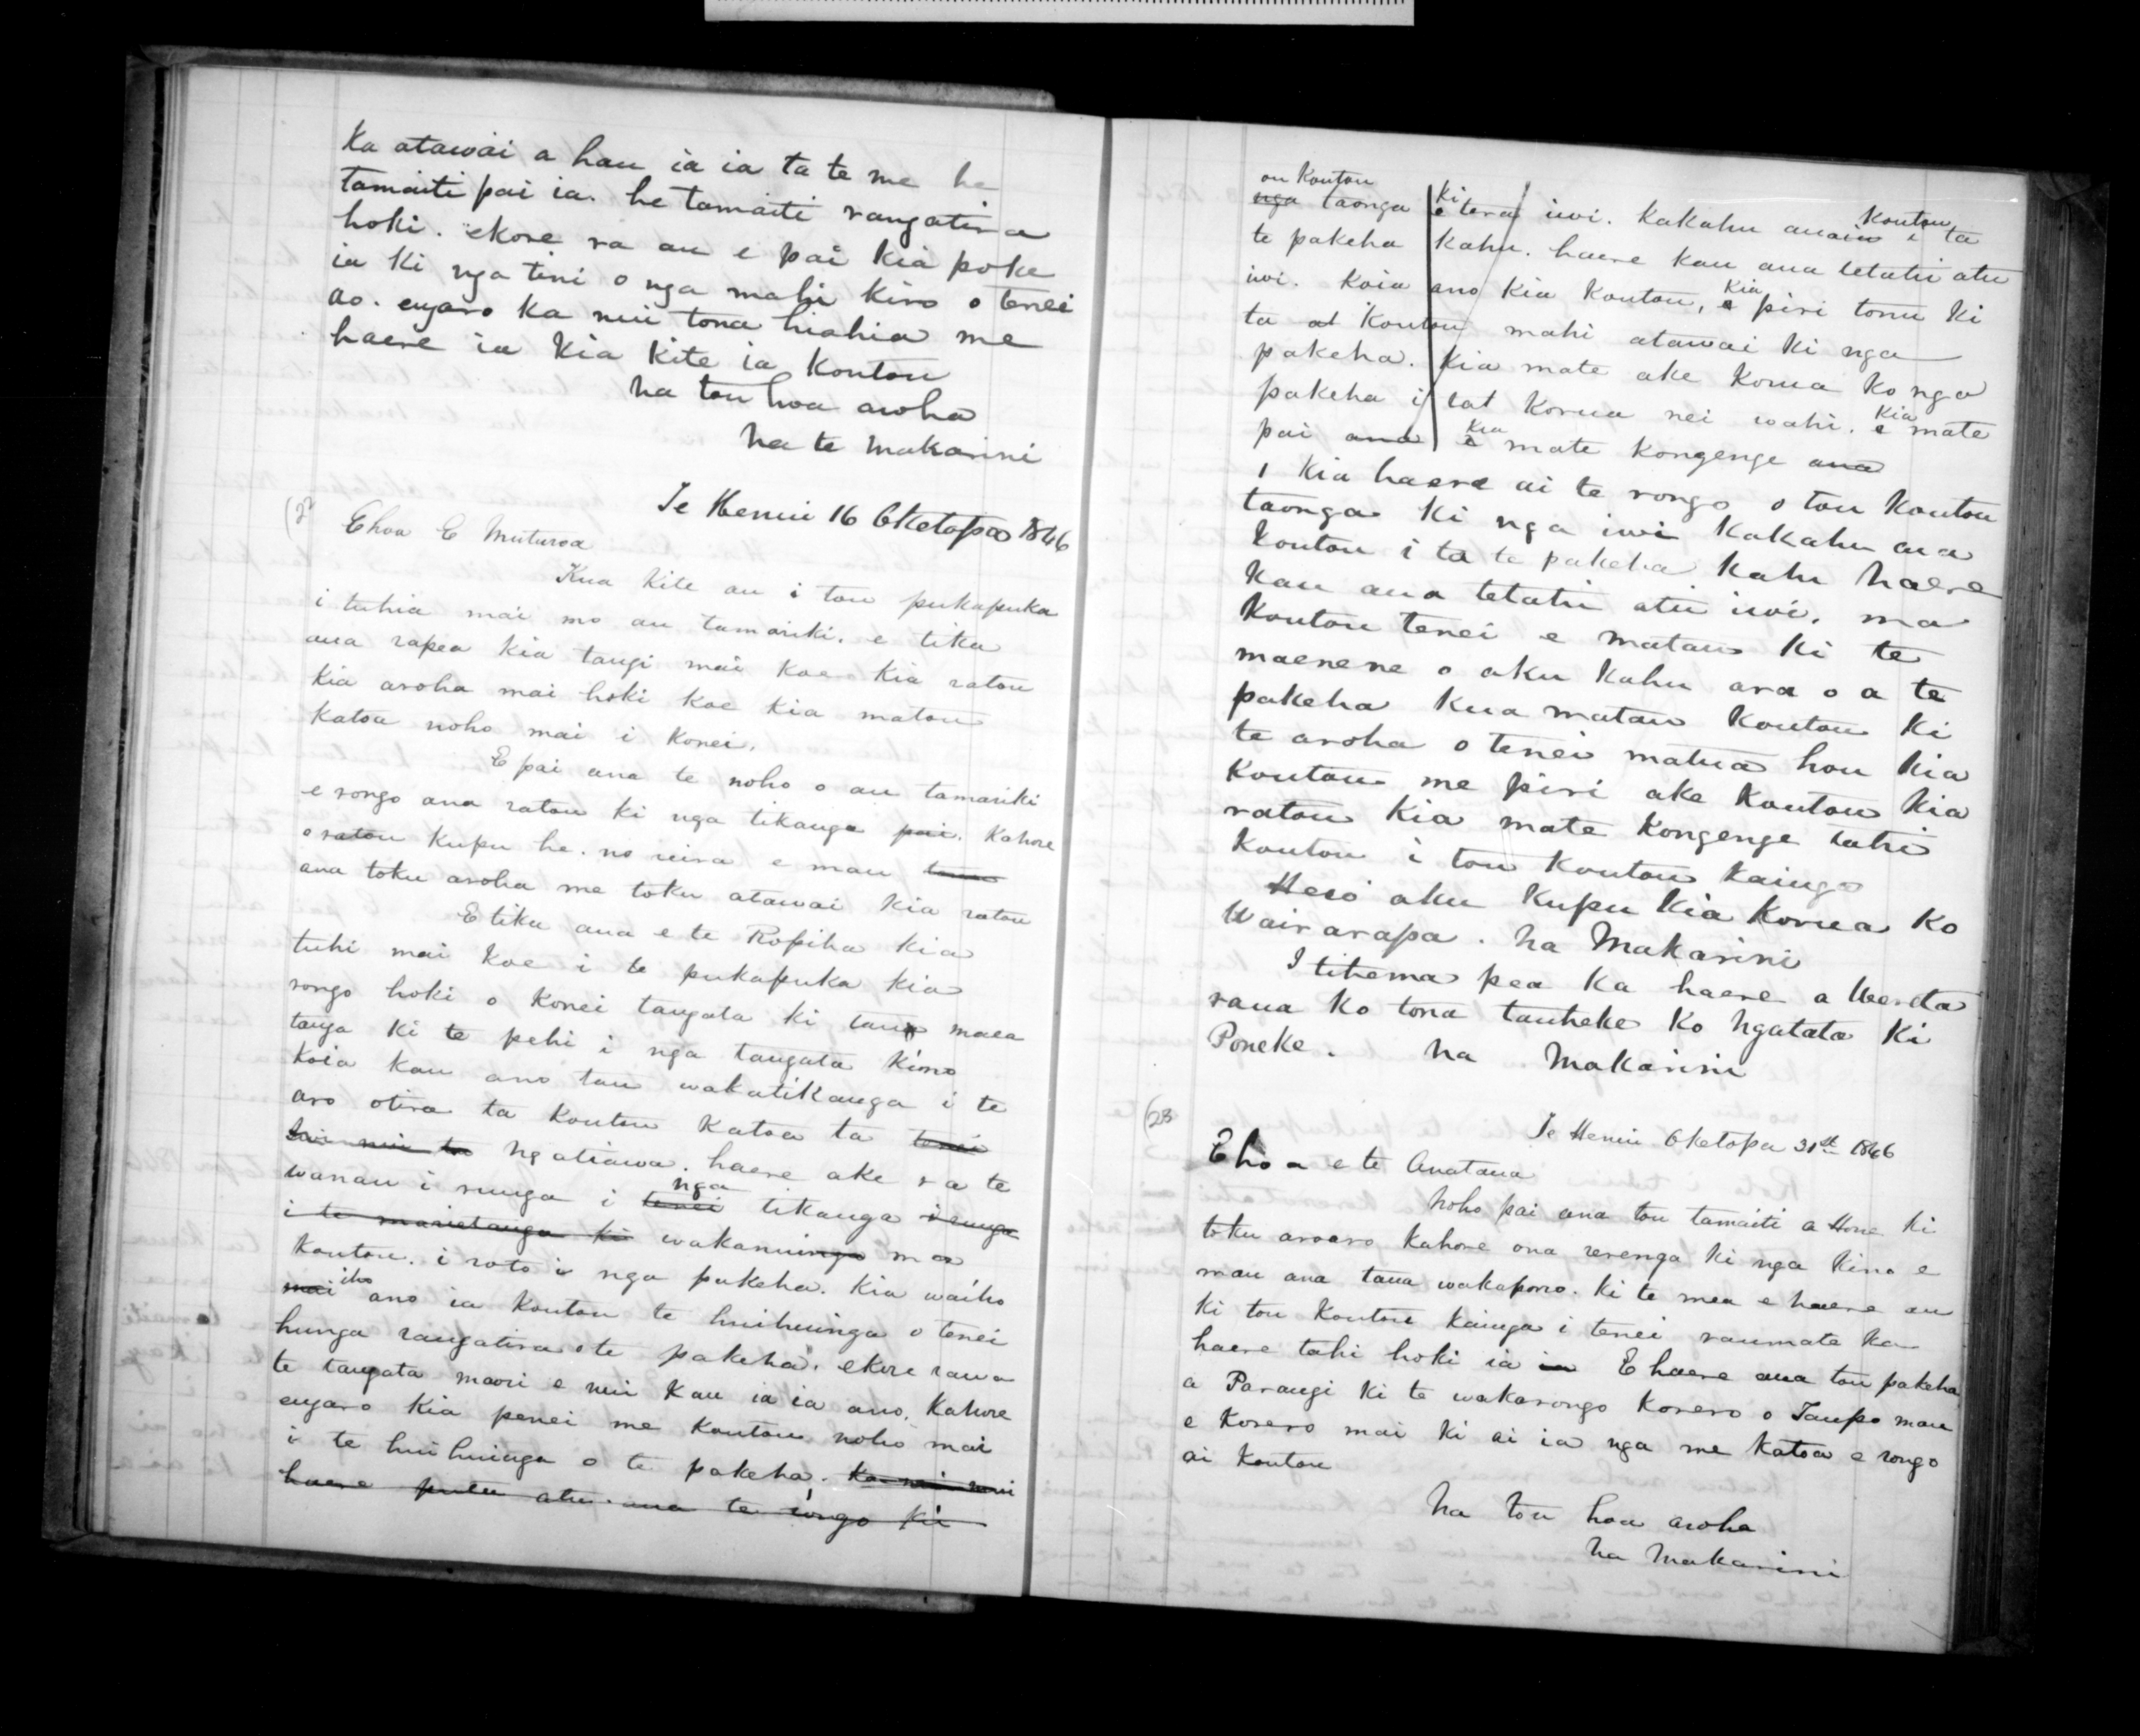 Ka atawai a hau ia ia ta te me he
tamaiti pai ia. he tamaiti rangatira
hoki. ekore ra au e pai kia poke
ia ki nga tini o nga mahi kino o tenei
ao. engaro ka nui tona hiahia me
haere ia kia kite ia koutou
na tou hoa aroha
na te Makarini
Te Henui 16 Oketopa 1846
(22
Ehoa E Muturoa
Kua kite au i tou pukapuka
i tuhia mai mo au tamariki. e tika
ana rapea kia tangi mai koe kia ratou
kia aroha mai hoki koe kia matou
katoa noho mai i konei.
E pai ana te noho o au tamariki
e rongo ana ratou ki nga tikanga pai. Kahore
o ratou kupu he. no reira e mau
ana toku aroha me toku atawai kia ratou
E tika ana e te Ropiha kia
tuhi mai koe i te pukapuka kia
rongo hoki o konei tangata ki tau maea
tanga ki te pehi i nga tangata kino
koia kau ano tau wakatikanga i te
aro otira ta koutou katoa ta tenei
iwi nui ta Ngatiawa. haere ake ra te
wanau i runga i tenei nga tikanga i runga
i te marietanga ki wakanuinga ma
koutou. i roto i nga pakeha. Kia waiho
mai iho ano ia koutou te huihuinga o tenei
hunga rangatira o te pakeha. ekore rawa
te tangata maori e nui kau ia ia ano. Kahore
engaro kia penei me koutou noho mai
i te huihuinga o te pakeha.
haere putu atu ana te rongo ki
ou koutou
nga taonga ki etera iwi. kakahu ana koutou i ta
te pakeha kahu. haere kau ana tetahi atu
iwi. Koia ano kia koutou, e kia piri tonu ki
ta at koutou mahi atawai ki nga
pakeha. Kia mate ake korua ko nga
pakeha i tat korua nei wahi. e kia mate
pai ana e kia mate kongenge ana
1 Kia haere ai te rongo o tou koutou
taonga ki nga iwi Kakahu ana
koutou i ta te pakeha kahu haere
kau ana tetahi atu iwi, ma
koutou tenei e matau ki te
maenene o aku kahu ara o a te
pakeha kua matau koutou ki
te aroha o tenei matua hou kia
koutou me piri ake koutou kia
ratou kia mate kongenge tahi
koutou i tou koutou kainga
Heoi aku kupu kia korua ko
Wairarapa. Na Makarini
I tihema pea ka haere a Wereta
raua ko tona tauheke ko Ngatata ki
Poneke. Na Makarini
(23
Te Henui Oketopa 31st 1846
Ehoa e te Anatana
Noho pai ana tou tamaiti a Hone ki
toku aroaro kahore ona rerenga ki nga kino e
mau ana tana wakapono. Ki te mea e haere au
ki tou koutou kainga i tenei raumate ka
haere tahi hoki ia ia E haere ana tou pakeha
a Parangi ki te wakarongo korero o Taupo mau
e korero mai ki ai ia nga me katoa e rongo
ai koutou
Na tou hoa aroha
na Makarini